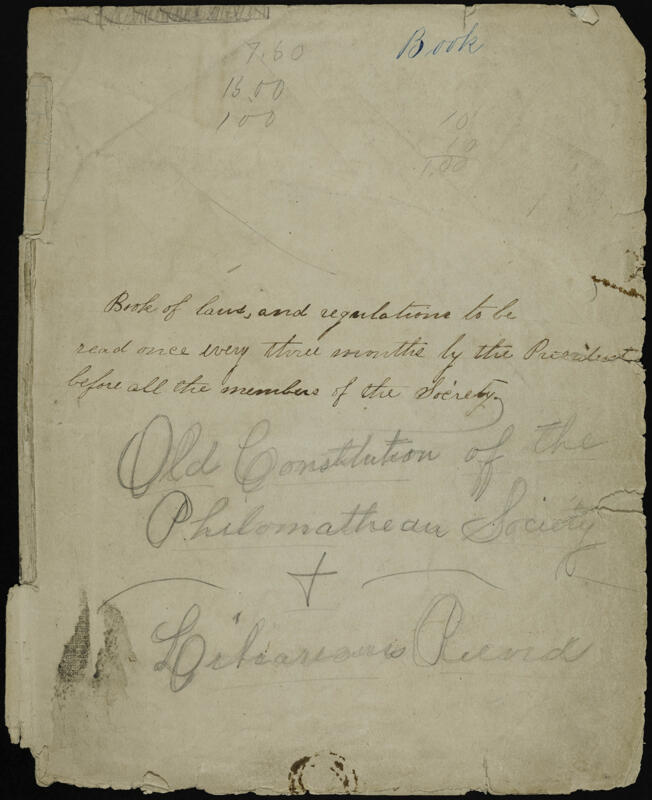 Book
7.60
15.00
1.00
10
10
1.00
Book of laws, and regulations to be
read once every three months by the President
before all the members of the Society.
Old Constitution of the
Philomathean Society
+
Librarians Record